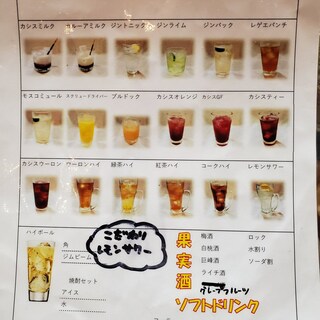 カシスミルク カルーアミルク ジントニック ジンライム ジンバック レゲエパンチ
モスコミュール スクリュードライバー ブルドック カシスオレンジ カシスGF カシスティー
カシスウーロン ウーロンハイ 緑茶ハイ 紅茶ハイ コークハイ レモンサワー
ハイボール
角
ジムビーム
焼酎セット
アイス
水
こだわり
レモンサワー
果実酒
梅酒
白桃酒
巨峰酒
ライチ酒
グレープフルーツ
ロック
水割り
ソーダ割
ソフトドリンク